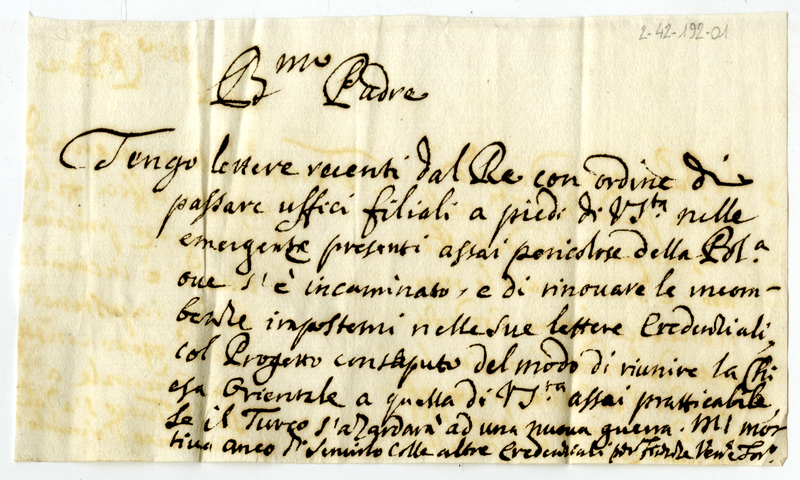 2-42-192-01
B.mo Padre
Tengo lettere recenti dal Re con ordine di
passare uffici filiali a piedi di V S.ta nelle
emergenze presenti assai pericolose della Pol.a
oue s'è incaminato, e di rinouare le incom-
benze impostemi nelle sue lettere Credenziali,
col Progetto consaputo del modo di riunire la Chi
esa Orientale a quella di V S.ta assai pratticabile,
se il Turco s'azardarà ad una nuoua guerra. Mi mor
tiua anco di seruirlo colle altre Credenziali per